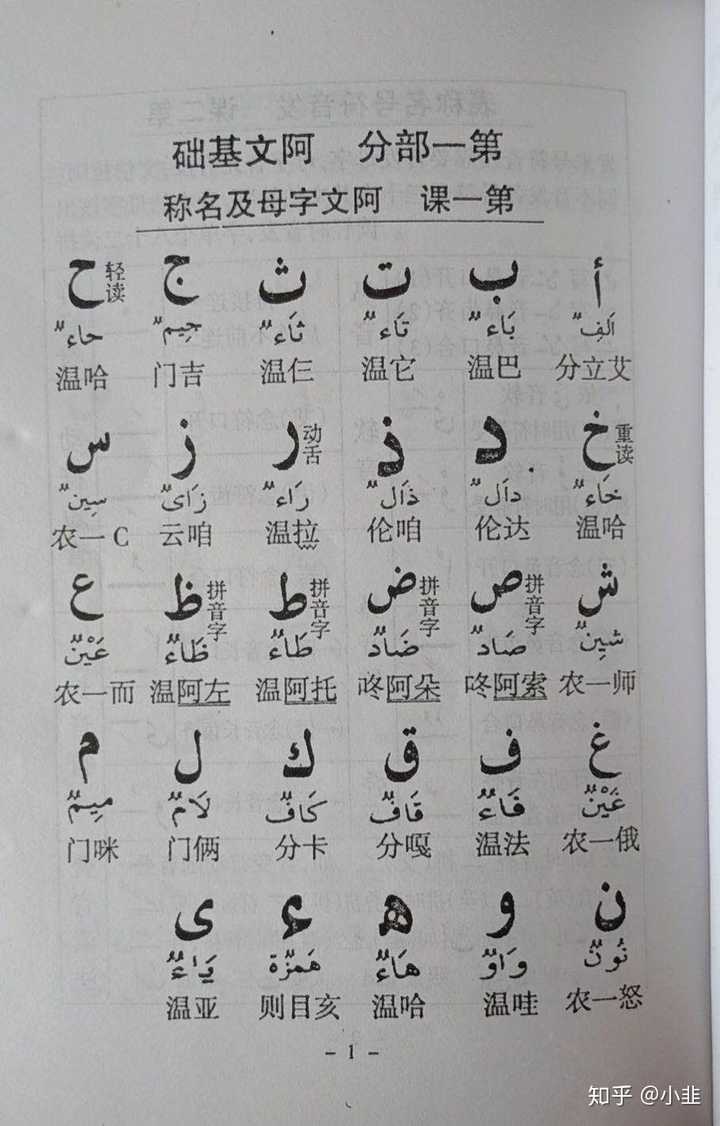 第一部分 阿文基础
第一课 阿文字母及名称
أ ب ت ث ج ح 轻读
اَلِفٌ بَاءٌ تَاءٌ ثَاءٌ جِيمٌ حاءٌ
艾立分 巴温 它温 仨温 吉门 哈温
خ 重读 د ذ ر 动舌 ز س
خَاءٌ دَالٌ ذَالٌ رَاءٌ زَاىٌ سِينٌ
哈温 达伦 咱伦 拉温 咱云 C一农
ش ص 拼音字 ض 拼音字 ط 拼音字 ظ 拼音字 ع
شِينٌ صَادٌ ضَادٌ طَاءٌ ظَاءٌ عَيْنٌ
师一农 索阿咚 朵阿咚 托阿温 左阿温 而一农
غ ف ق ك ل م
غَيْنٌ فَاءٌ قَافٌ كَافٌ لَامٌ مِيمٌ
俄一农 法温 嘎分 卡分 俩门 咪门
ن و ه ء ى
نُونٌ وَاوٌ هَاءٌ هَمْزَة يَاءٌ
怒一农 哇温 哈温 亥目则 亚温
- 1 -
知乎 @小韭